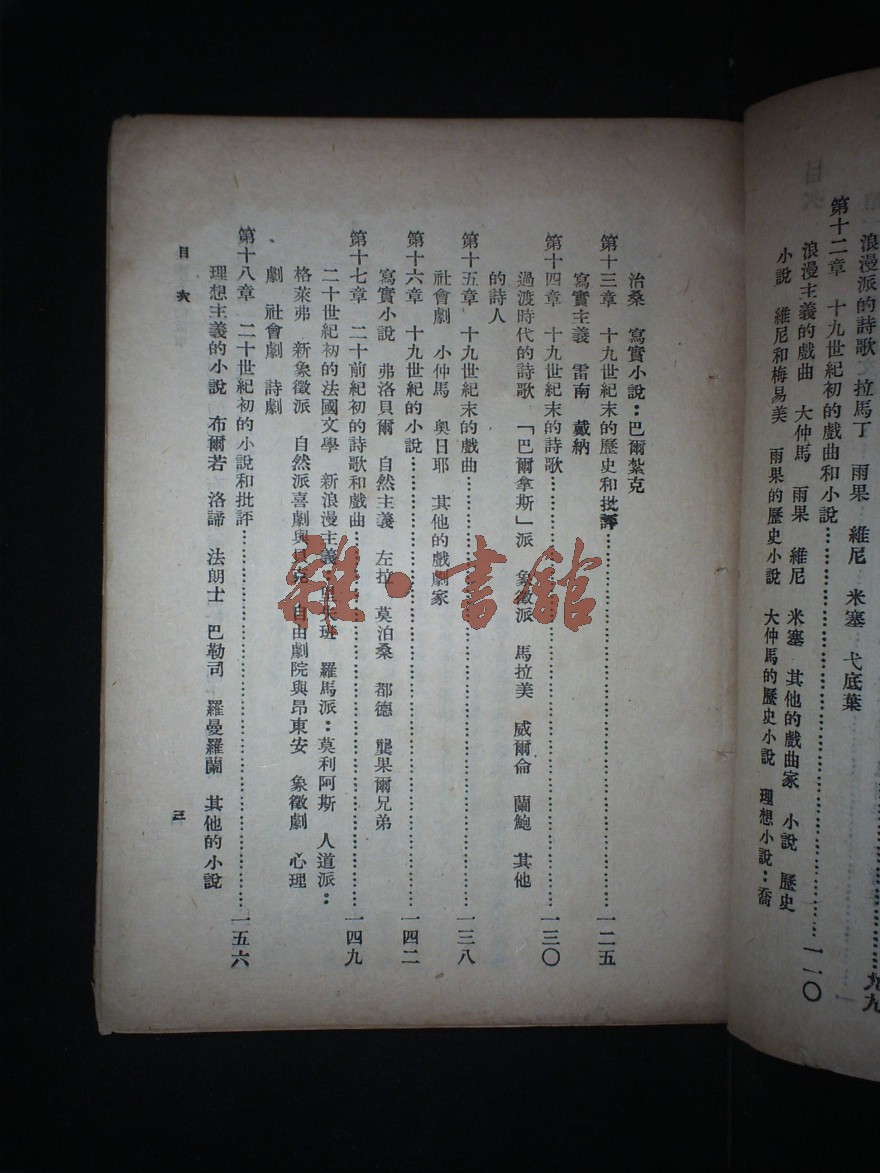 浪漫派的詩歌 拉馬丁 雨果 維尼 米塞 弋底葉
九九
第十二章 十九世紀初的戲曲和小說……一一〇
浪漫主義的戲曲 大仲馬 雨果 維尼 米塞 其他的戲曲家 小說 歷史
小說 維尼和梅易美 雨果的歷史小說 大仲馬的歷史小說 理想小說：喬
治桑 寫實小說：巴爾紮克
第十三章 十九世紀末的歷史和批評……一二五
寫實主義 雷南 戴納
第十四章 十九世紀末的詩歌……一三〇
過渡時代的詩歌 「巴爾拿斯」派 象徵派 馬拉美 威爾倫 蘭鮑 其他
的詩人
第十五章 十九世紀末的戲曲……一三八
社會劇 小仲馬 奧日耶 其他的戲劇家
第十六章 十九世紀的小說……一四二
寫實小說 弗洛貝爾 自然主義 左拉 莫泊桑 都德 龔果爾兄弟
第十七章 二十前紀初的詩歌和戲曲……一四九
二十世紀初的法國文學 新浪漫主義 班 羅馬派：莫利阿斯 人道派：
格萊弗 新象徵派 自然派喜劇與 克 自由劇院與昂東安 象徵劇 心理
劇 社會劇 詩劇
第十八章 二十世紀初的小說和批評……一五六
理想主義的小說 布爾若 洛諦 法朗士 巴勒司 羅曼羅蘭 其他的小說
目次
三
雜·書館